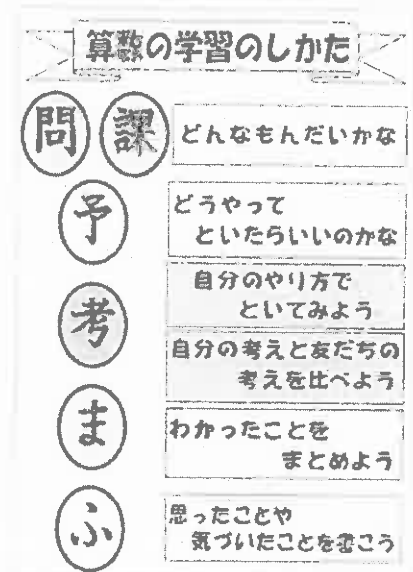 算数の学習のしかた
問 課 どんなもんだいかな
予 どうやって
といたらいいのかな
考 自分のやり方で
といてみよう
自分の考えと友だちの
考えを比べよう
ま わかったことを
まとめよう
ふ 思ったことや
気づいたことを書こう